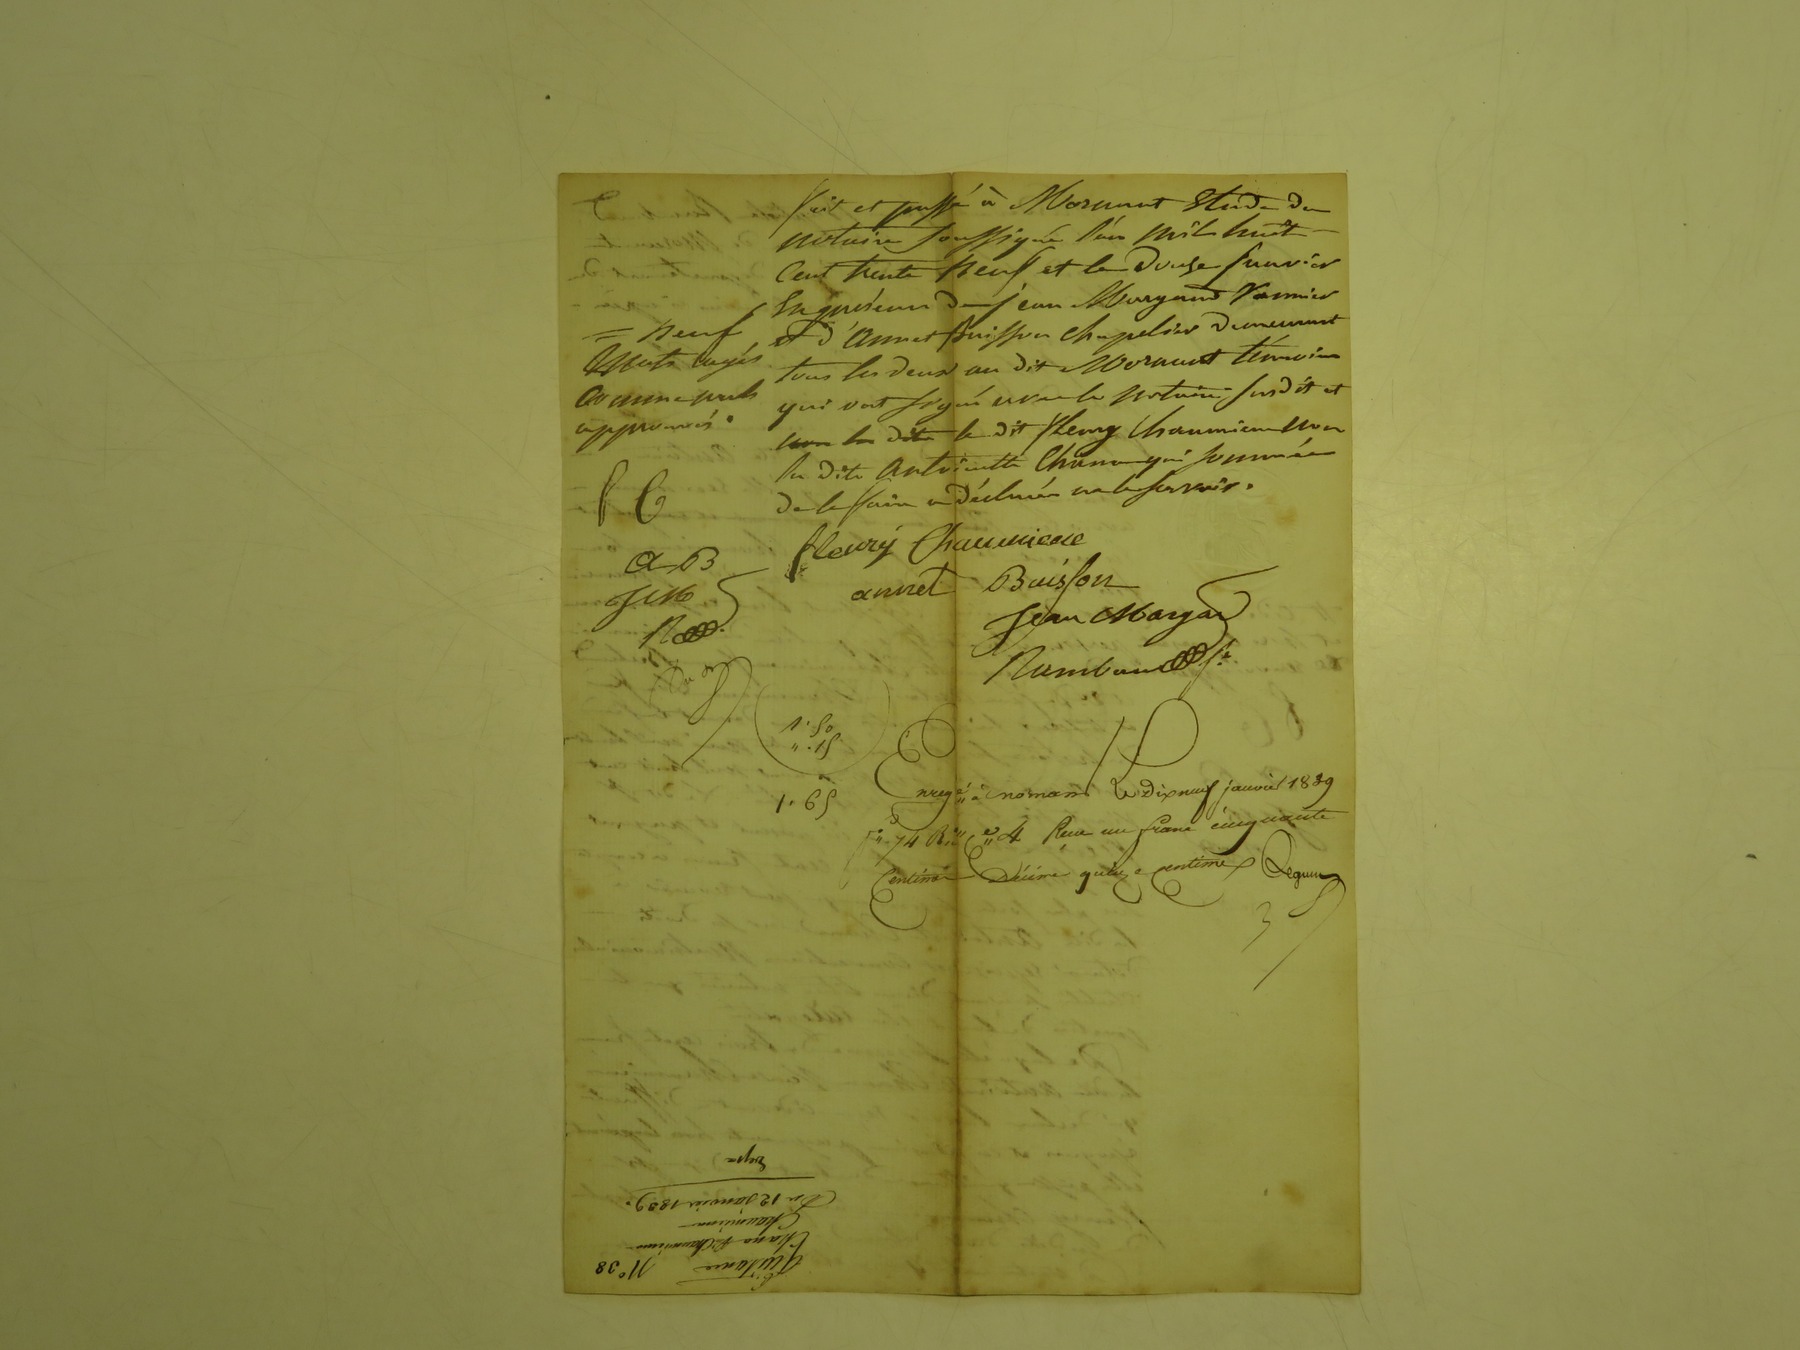 fait et passé à Mornant Etude du
notaire soussigné l'an mil huit
cent trente neuf et le douze Janvier
En présence de Jean Margand Vannier
et d'Annet Buisson chapelier demeurant
tous les deux au dit Mornant témoins
qui ont signé avec le notaire susdit et
le dit fleury Chaumienne non
la dite Antoinette Chana qui sommée
de le faire a déclaré ne le savoir.
= Neuf
Mots rayés
comme nuls
approuvés.
f C
A B
J M
R
fleury Chaumiene
annet Buisson
Jean Margan
Rambaud
1.50
".15
1.65
Enregé à mornant Le dix neuf janvier 1839
f° 74 R° Ce 4 Reçu un franc cinquante
Centimes Décime quinze centimes
N° 38
Quittance
Chana & Chaumienne
Chaumienne
Du 12 Janvier 1839.
Expe